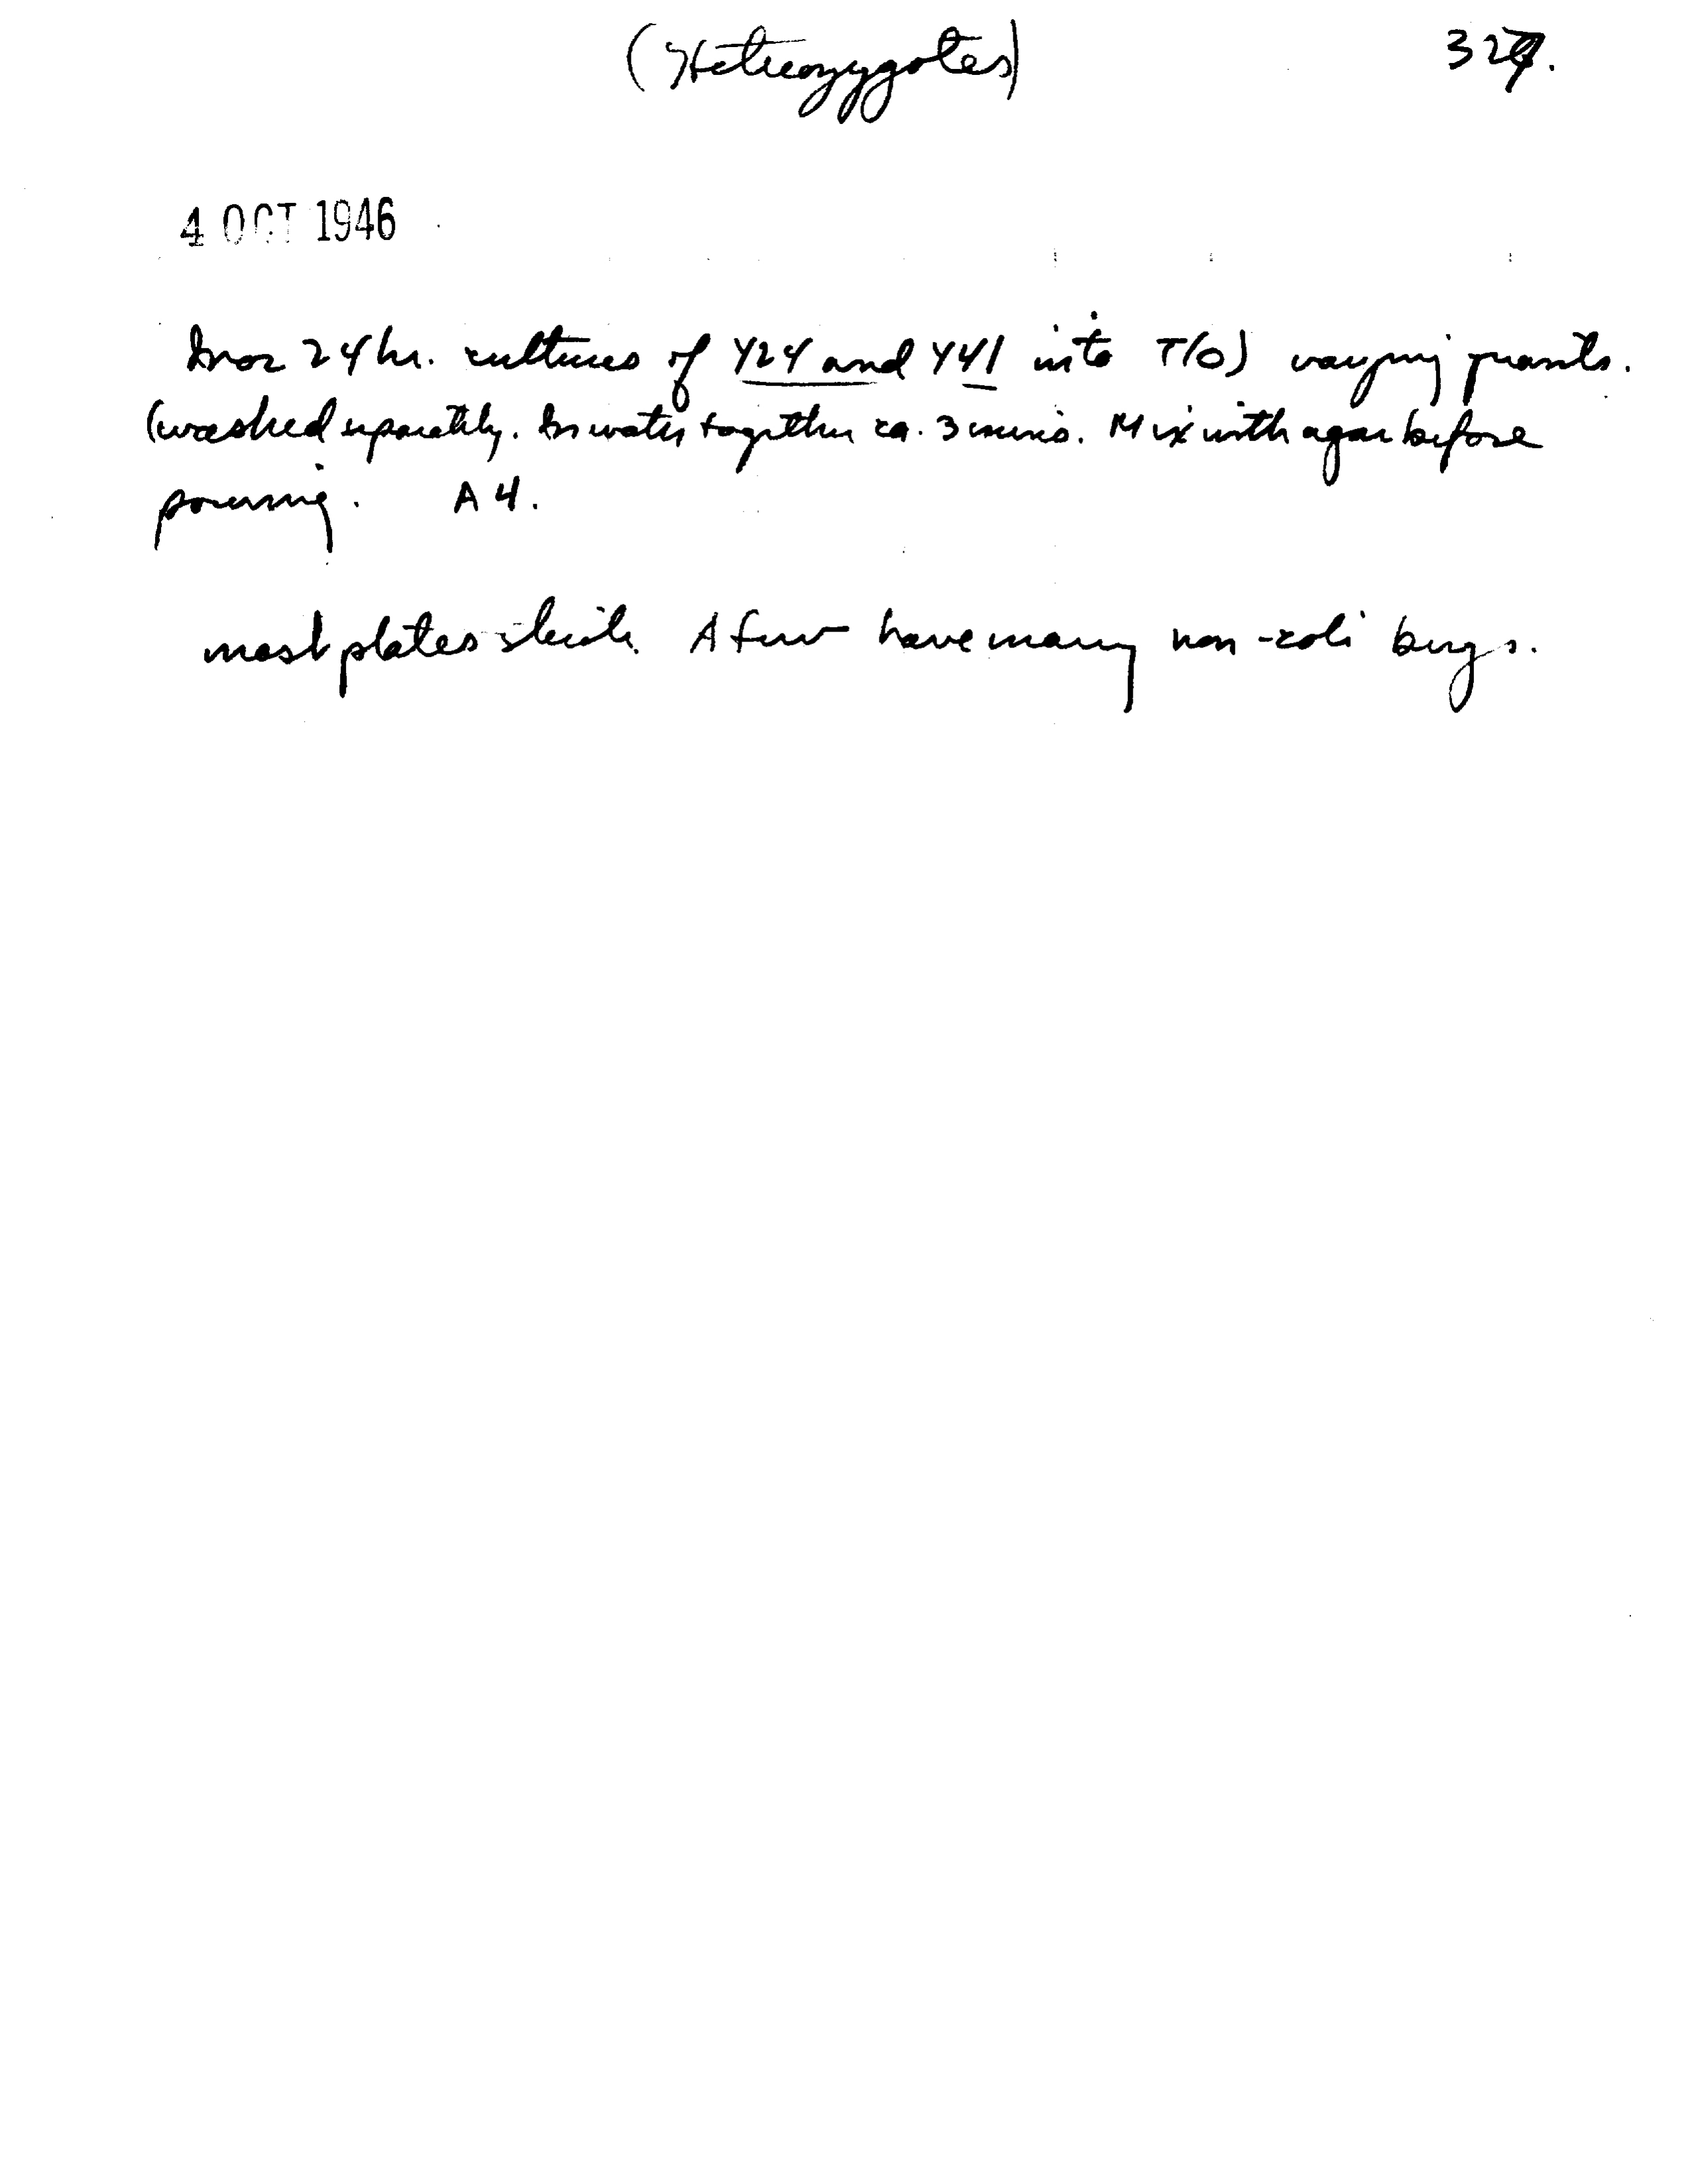 (Heterozygotes)
4 OCT 1946
24 hr. cultures of Y24 and Y41 into T(0) varying quants.
(washed separately. In water together ca. 3 mins. Mix with agar before
pouring. A4.
most plates sterile. A few have many non-coli bugs.